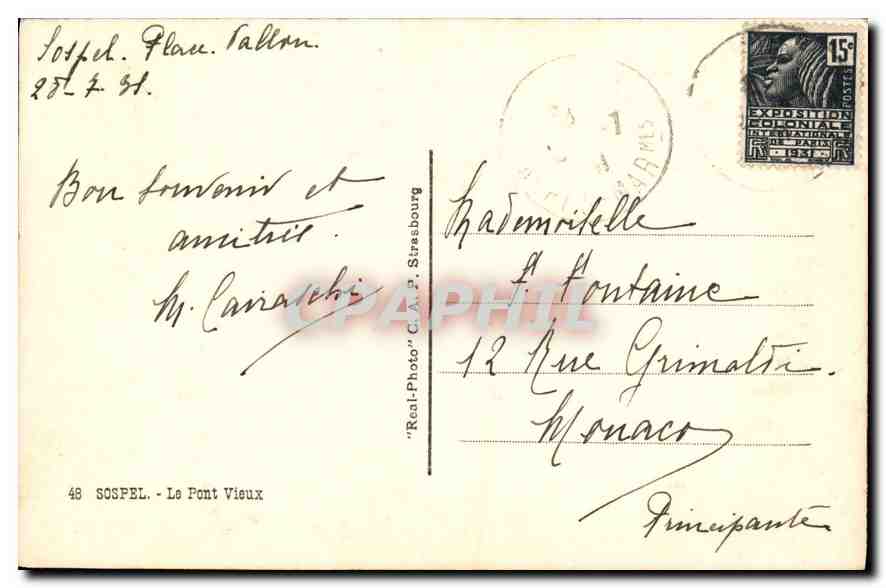 Sospel. Place. Vallon.
28-7-31.
Bon souvenir et
amitiés.
M.
"Real-Photo" C. A. P. Strasbourg
48 SOSPEL. - Le Pont Vieux
15c
POSTES
EXPOSITION
COLONIALE
INTERNATIONALE
DE PARIS
1931
Mademoiselle
F. Fontaine
12 Rue Grimaldi.
Monaco
Principauté
CPAPHIL